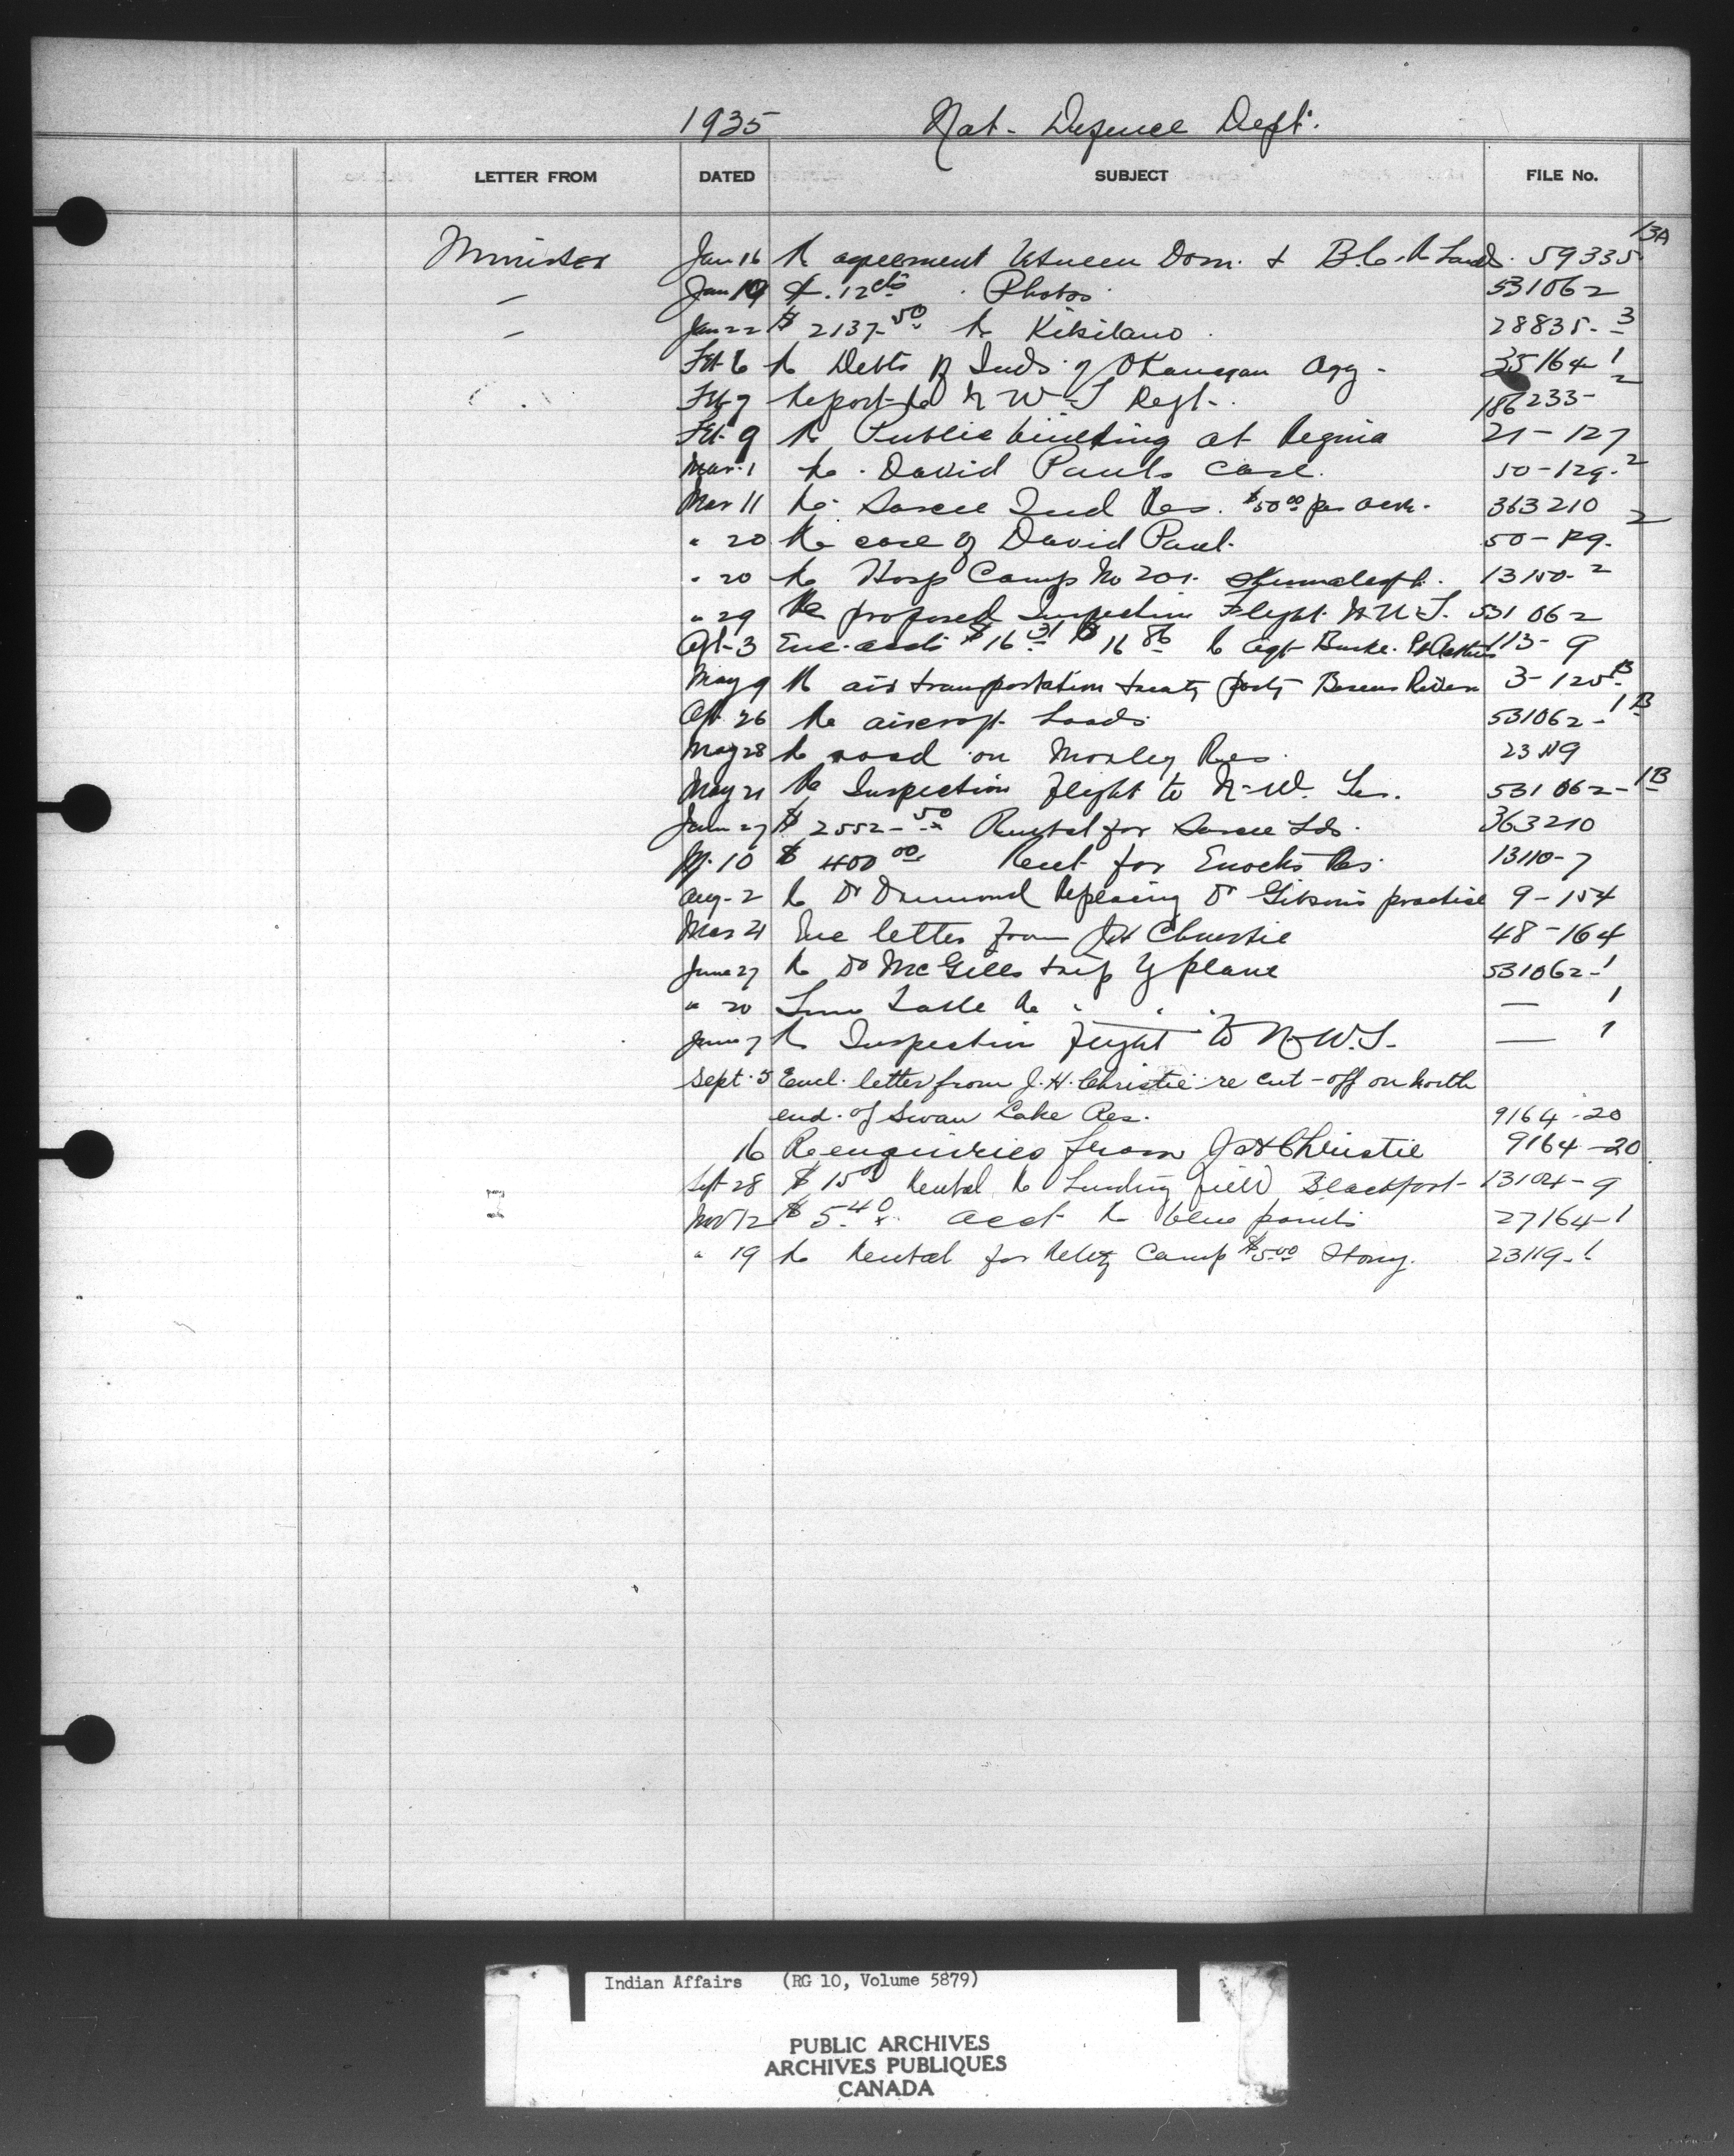 1935 Nat- Defence Dept.
LETTER FROM DATED SUBJECT FILE No.
Minister Jan 16 Re agreement between Dom. & B.C. Re Lands. 59335 13A
— Jan 19 $ .12 cts Photos 531062
— Jan 22 $ 2137.50 Re Kitsilano 28835-3
Feb 6 Re Debts of Inds of Okanagan Agy - 35164-1
Feb 7 Report Re N W T Regt- 186233-2
Feb 9 Re Public building at Regina 21-127
Mar 1 Re David Pauls case. 50-129-2
Mar 11 Re Sarcee Ind Res. $50.00 per acre. 363210
" 20 Re case of David Paul. 50-129-2
" 20 Re Hosp Camp No 201. 13150-2
" 29 Re proposed Inspection Flight N.W.T. 531062
Apl-3 Enc. accts $16.31 & $16.86 to Agt Burke. 113-9
May 9 Re air transportation treaty party Berens River 3-125-B
Ap. 26 Re aircraft Loads 531062-1B
May 28 Re road on Morley Res. 23119
May 21 Re Inspection flight to N-W. Ter. 531062-1B
June 27 $ 2552-50 Rental for Sarcee Lds. 363210
Jy. 10 $ 400.00 Rent for Enochs Res 13110-7
Aug-2 Re Dr replacing Dr Gibson's practice 9-154
Mar 21 Enc letter from J H Christie 48-164
June 27 Re Dr McGills trip by plane 531062-1
" 20 Time Table Re " " " — 1
June 7 Re Inspection flight to N.W.T. — 1
Sept. 5 Encl. letter from J. H. Christie re cut-off on north
end. of Swan Lake Res. 9164-20
16 Re enquiries from J H Christie 9164-20
Sept 28 $ 15.00 Rental Re Landing field Blackfoot- 13104-9
Nov 12 $ 5.40 acct Re blue prints 27164-1
" 19 Re Rental for Camp $5.00 Stony. 23119-1
Indian Affairs (RG 10, Volume 5879)
PUBLIC ARCHIVES
ARCHIVES PUBLIQUES
CANADA